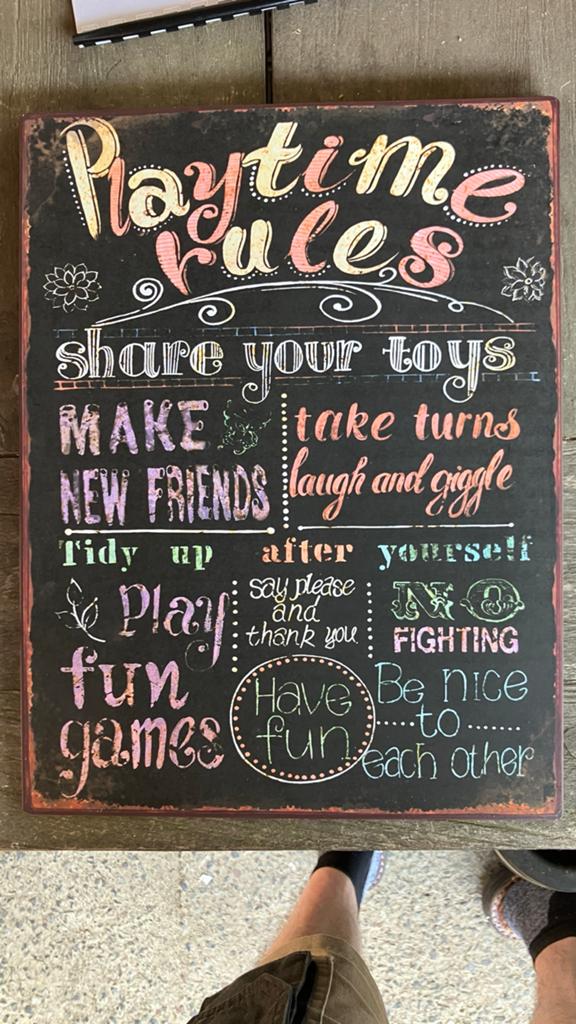 Playtime
rules
share your toys
MAKE
NEW FRIENDS
take turns
laugh and giggle
Tidy up after yourself
Play
fun
games
say please
and
thank you
Have
fun
NO
FIGHTING
Be nice
to
each other